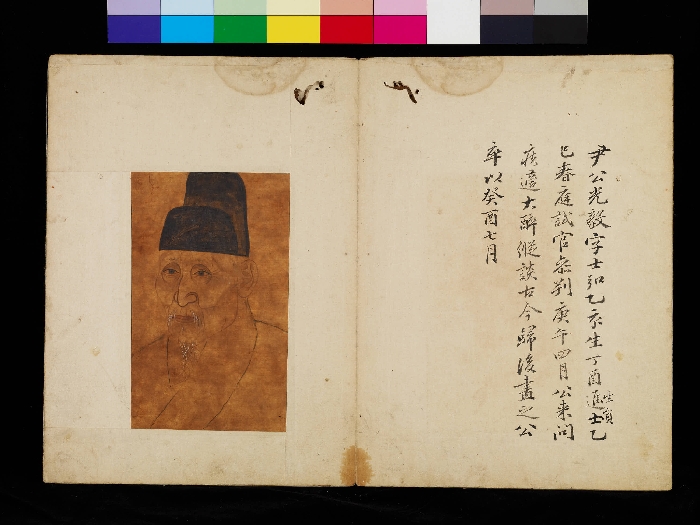 尹公光毅字士弘乙亥生丁酉進士乙
生員
巳春庭試官參判庚午四月公來問
疾適大醉縱談古今歸後畫之公
卒以癸酉七月